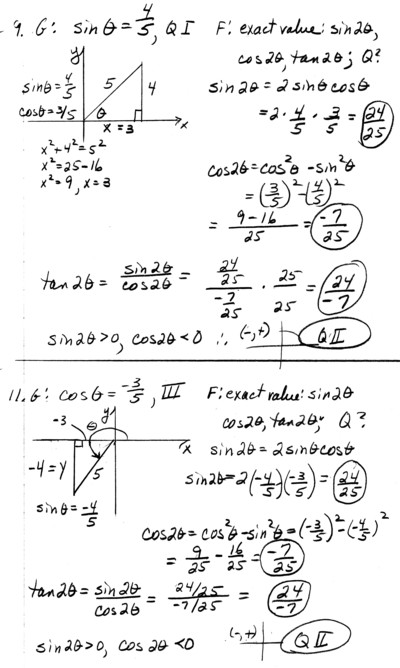 9. G: sinθ = 4/5, Q I F: exact value: sin2θ,
cos2θ, tan2θ; Q?
y
sinθ = 4/5
cosθ = 3/5
5
4
θ
x = 3
x
x² + 4² = 5²
x² = 25 - 16
x² = 9, x = 3
sin2θ = 2 sinθ cosθ
= 2 · 4/5 · 3/5 = 24/25
cos2θ = cos²θ - sin²θ
= (3/5)² - (4/5)²
= 9-16/25 = -7/25
tan2θ = sin2θ/cos2θ = 24/25/-7/25 · 25/25 = 24/-7
sin2θ > 0, cos2θ < 0 ∴ (-,+) Q II
11. G: cosθ = -3/5, III F: exact value: sin2θ
cos2θ, tan2θ; Q?
y
-3
θ
x
-4 = y
5
sinθ = -4/5
sin2θ = 2 sinθ cosθ
sin2θ = 2(-4/5)(-3/5) = 24/25
cos2θ = cos²θ - sin²θ = (-3/5)² - (-4/5)²
= 9/25 - 16/25 = -7/25
tan2θ = sin2θ/cos2θ = 24/25/-7/25 = 24/-7
sin2θ > 0, cos2θ < 0 (-,+) Q II